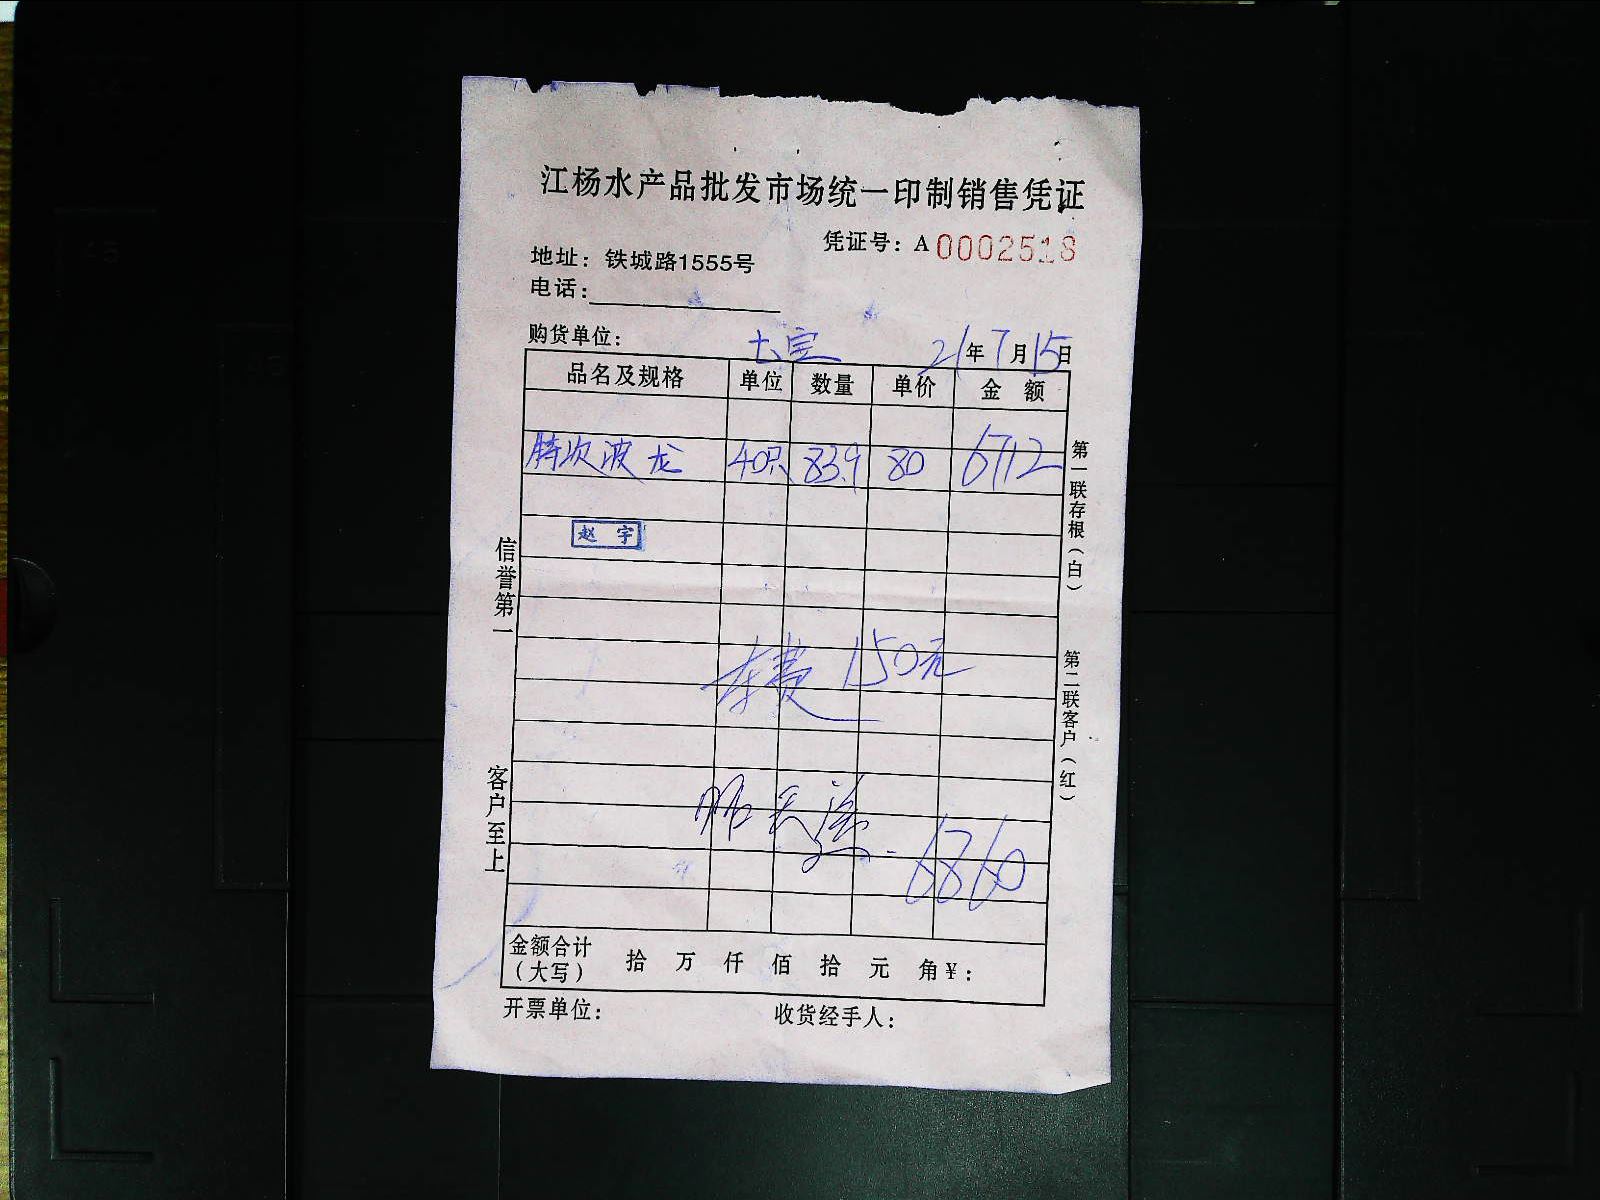 江杨水产品批发市场统一印制销售凭证
凭证号：A 0002518
地址：铁城路1555号
电话：
购货单位： 大宝 21年7月15日
品名及规格 单位 数量 单价 金额
特次波龙 40只 83.9 80 6712
赵宇
车费 150元
6860
金额合计（大写） 拾 万 仟 佰 拾 元 角 ¥：
开票单位： 收货经手人：
信誉第一 客户至上
第一联存根（白） 第二联客户（红）